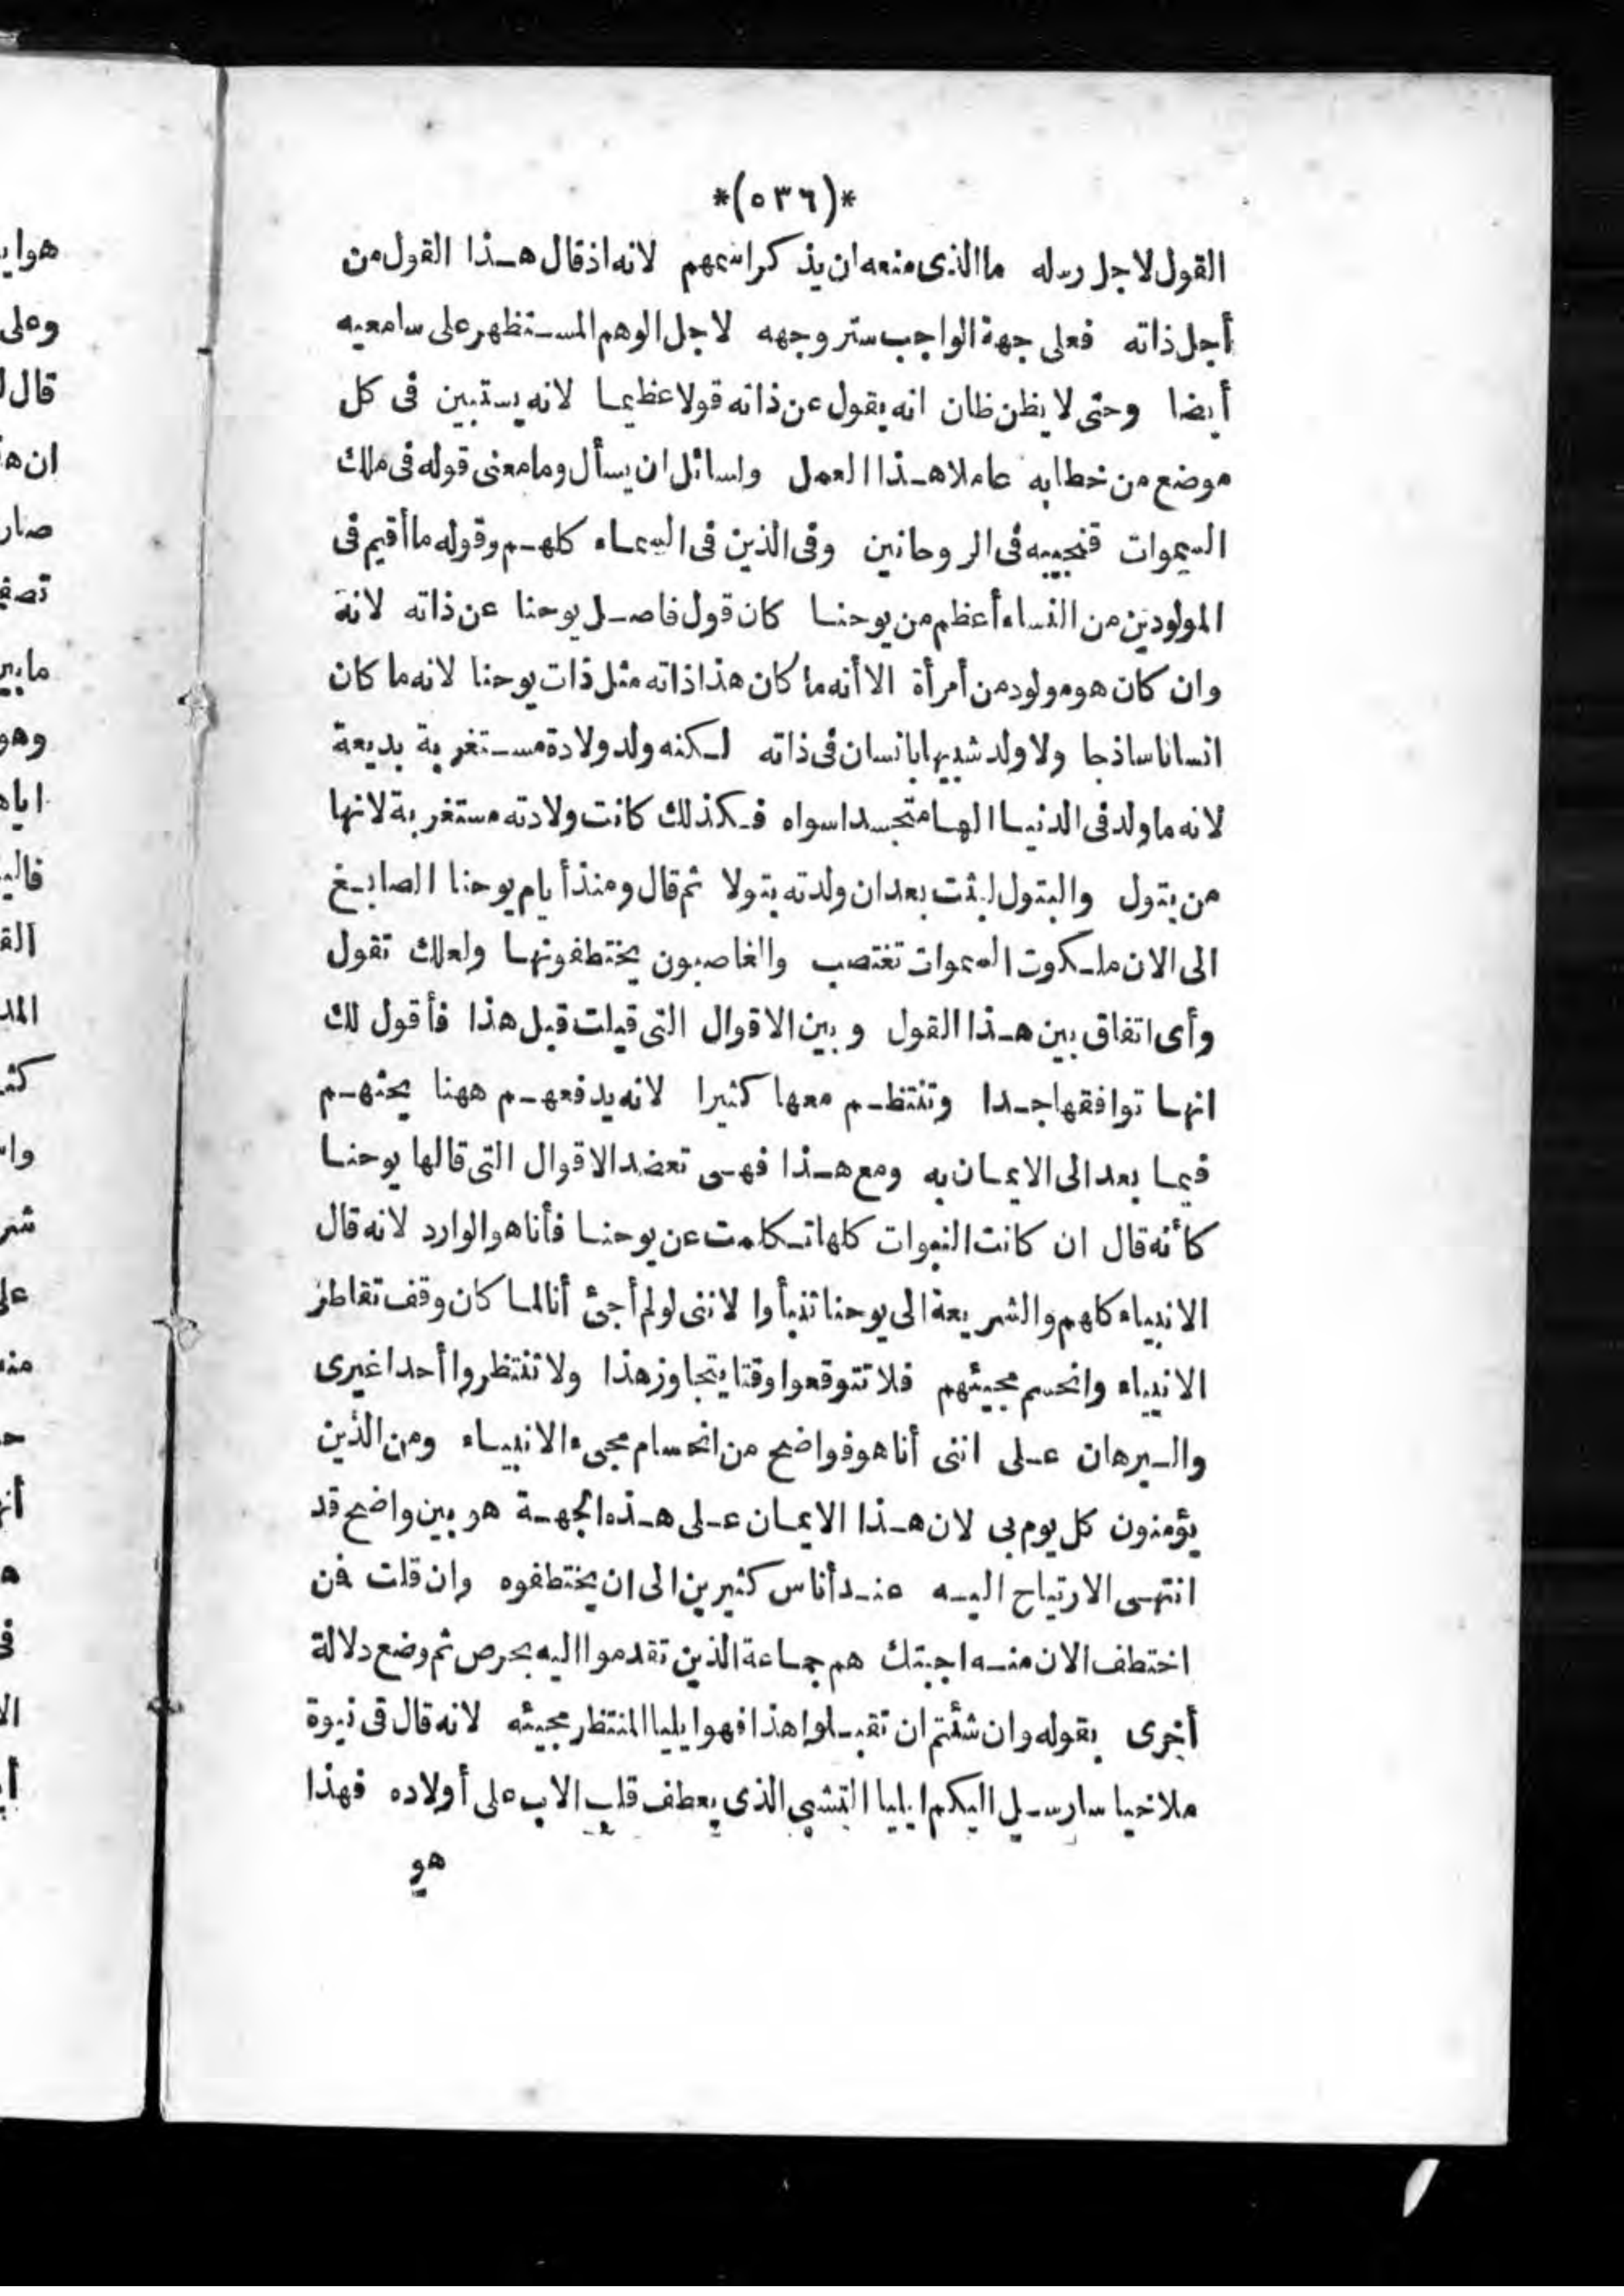 *(٥٣٦)*
القول لاجل رسله ما الذى منعه ان يذكر اسمهم لانه اذ قال هـذا القول من
أجل ذاته فعلى جهة الواجب ستر وجهه لاجل الوهم المستظهر على سامعيه
أيضا وحتى لا يظن ظان انه يقول عن ذاته قولا عظيما لانه يستبين فى كل
موضع من خطابه عاملا هـذا العمل ولسائل ان يسأل وما معنى قوله فى ملك
السموات فنجيبه فى الروحانين وفى الذين فى السماء كلهـم وقوله ما أقيم فى
المولودين من النساء أعظم من يوحنا كان قول فاصـل يوحنا عن ذاته لانه
وان كان هو مولود من أمرأة الا أنه ما كان هذا ذاته مثل ذات يوحنا لانه ما كان
انسانا ساذجا ولا ولد شبيها بانسان فى ذاته لـكنه ولد ولادة مستغربة بديعة
لانه ما ولد فى الدنيا الها متجسدا سواه فـكذلك كانت ولادته مستغربة لانها
من بتول والبتول لبثت بعد ان ولدته بتولا ثم قال ومنذ أيام يوحنا الصابـغ
الى الان ملـكوت السموات تغتصب والغاصبون يختطفونها ولعلك تقول
وأى اتفاق بين هـذا القول وبين الاقوال التى قيلت قبل هذا فأقول لك
انها توافقها جـدا وتنتظـم معها كثيرا لانه يدفعهـم ههنا يحثهـم
فيما بعد الى الايمان به ومع هـذا فهـى تعضد الاقوال التى قالها يوحنا
كأنه قال ان كانت النبوات كلها تـكلمت عن يوحنا فأنا هو الوارد لانه قال
الانبياء كلهم والشريعة الى يوحنا تنبأوا لاننى لو لم أجئ أنا لما كان وقف تقاطر
الانبياء وانحسم مجيئهم فلا تتوقعوا وقتا يتجاوز هذا ولا تنتظروا أحدا غيرى
والـبرهان عـلى اننى أنا هو فواضح من انحسام مجىء الانبياء ومن الذين
يؤمنون كل يوم بى لان هـذا الايمان عـلى هـذه الجهـة هو بين واضح قد
انتهـى الارتياح اليـه عنـد أناس كثيرين الى ان يختطفوه وان قلت فمن
اختطف الان منـه اجبتك هم جماعة الذين تقدموا اليه بحرص ثم وضع دلالة
أخرى بقوله وان شئتم ان تقبـلوا هذا فهو ايليا المنتظر مجيئه لانه قال فى نبوة
ملاخيا سارسـل اليكم ايليا التشبى الذى يعطف قلب الاب على أولاده فهذا
هو